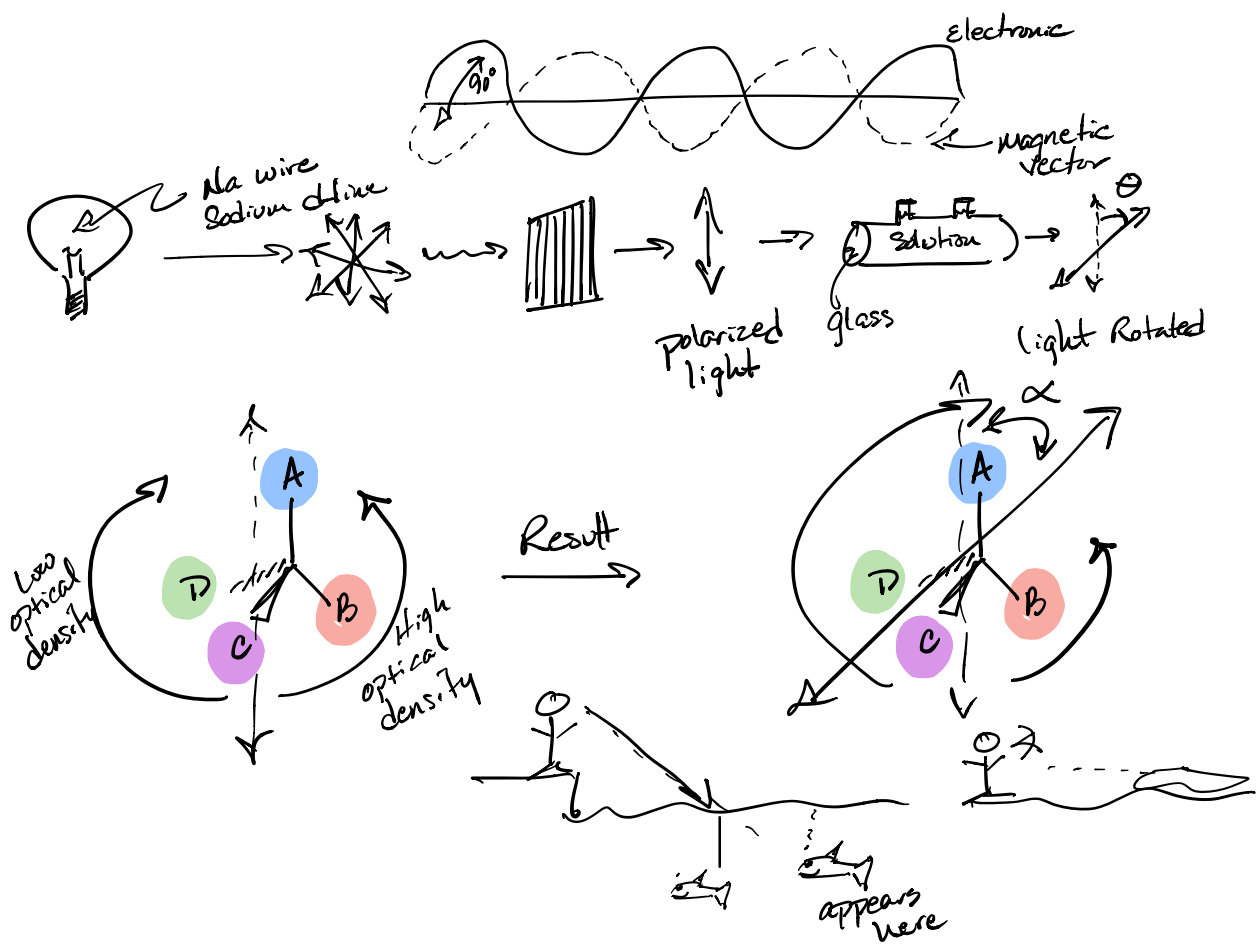 Electronic
90°
magnetic
vector
Na wire
Sodium d-line
θ
Solution
glass
polarized
light
light Rotated
α
A
D
B
C
Low
optical
density
High
optical
density
Result
A
D
B
C
appears
here